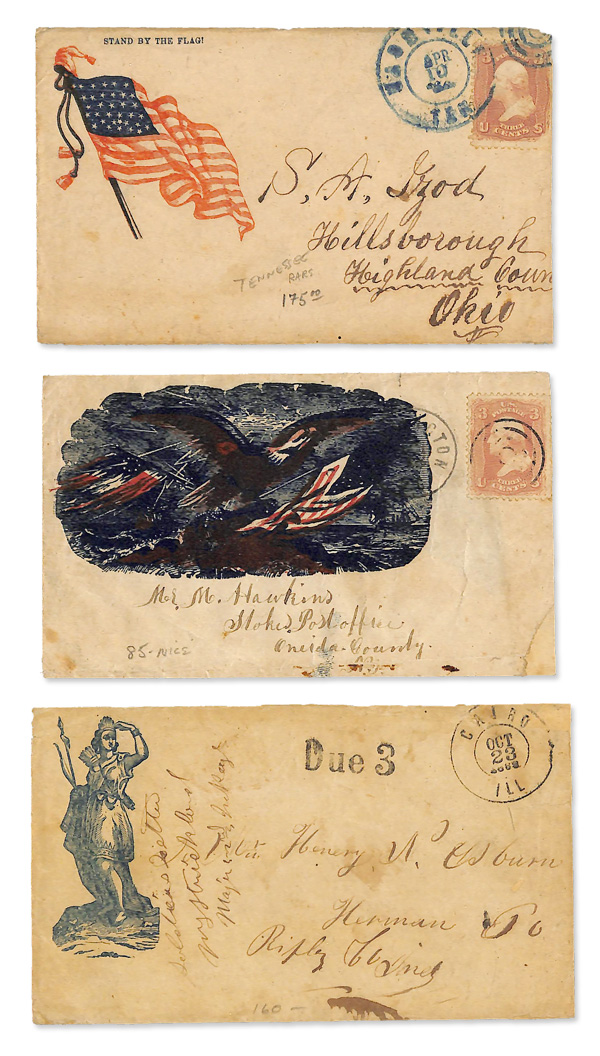 STAND BY THE FLAG!
NASHVILLE
APR
10
TEN
U S
THREE
CENTS
S. A. Izod
Hillsborough
Highland Coun
Ohio
TENNESSEE
RARE
175 00
GTON
U.S.
POSTAGE
3 3
U S
THREE
CENTS
Mr. M. Hawkins
Stokes Post office
Oneida County.
85-NICE
CAIRO
OCT
23
ILL
Due 3
Soldiers Letter
Major
Henry N. Osburn
Herman Po
Ripley Co Ind
160 -